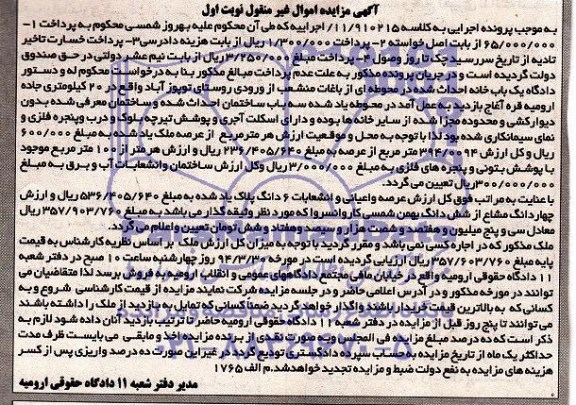 آگهی مزایده اموال غیر منقول نوبت اول
به موجب پرونده اجرایی به کلاسه ۱۱/۹۱۰۲۱۵/ اجراییه که طی آن محکوم علیه بهروز شمسی محکوم به پرداخت ۱-
۶۵/۰۰۰/۰۰۰ از بابت اصل خواسته ۲- پرداخت ۱/۳۰۰/۰۰۰ ریال از بابت هزینه دادرسی۳- پرداخت خسارت تاخیر
تادیه از تاریخ سررسید چک تا روز وصول ۴- پرداخت مبلغ ۳/۲۵۰/۰۰۰ ریال از بابت نیم عشر دولتی در حق صندوق
دولت گردیده است و در جریان پرونده مذکور به علت عدم پرداخت مبالغ مذکور بنا به درخواست محکوم له و دستور
دادگاه یک باب خانه احداث شده در محوطه ای از باغات منشعب از ورودی روستای توپوز آباد واقع در ۲۰ کیلومتری جاده
ارومیه قره آغاج بازدید به عمل آمد در محوطه یاد شده سه باب ساختمان احداث شده و ساختمان معرفی شده بدون
دیوارکشی و محدوده مجزا شده از سایر خانه ها بوده و دارای اسکلت آجری و پوشش تیرچه بلوک و درب وپنجره فلزی و
نمای سیمانکاری شده بود لذا با توجه به محل و موقعیت ارزش هر مترمربع از عرصه ملک یاد شده به مبلغ ۶۰۰/۰۰۰
ریال و کل ارزش ۳۹۴/۰۰۹۴ متر مربع از عرصه به مبلغ ۲۳۶/۴۰۵/۶۴۰ ریال و ارزش هر متر از ۱۰۰ متر مربع موجود
با پوشش بتونی و پنجره های فلزی به مبلغ ۳/۰۰۰/۰۰۰ ریال وکل ارزش ساختمان وانشعابات آب و برق به مبلغ
۳۰۰/۰۰۰/۰۰۰ ریال تعیین می گردد.
با عنایت به مراتب فوق کل ارزش عرصه واعیانی و انشعابات ۶ دانگ پلاک یاد شده به مبلغ ۵۳۶/۴۰۵/۶۴۰ ریال و ارزش
چهاردانگ مشاع از شش دانگ بهمن شمسی کاروانسرا که مورد نظر وثیقه گذار می باشد به مبلغ ۳۵۷/۹۰۳/۷۶۰ ریال
معادل سی و پنج میلیون و هفتصد و شصت هزار و سیصد وهفتاد و شش تومان تعیین و اعلام می گردد.
ملک مذکور که در اجاره کسی نمی باشد و مقرر گردید با توجه به میزان کل ارزش ملک بر اساس نظریه کارشناس به قیمت
پایه مبلغ ۳۵۷/۶۰۳/۷۶۰ ریال ارزیابی گردیده است در مورخه ۹۴/۳/۲۰ روز چهارشنبه ساعت ۱۰ صبح در دفتر شعبه
۱۱ دادگاه حقوقی ارومیه واقع در خیابان مافی مجتمع دادگاههای عمومی و انقلاب ارومیه به فروش برسد لذا متقاضیان می
توانند در مورخه مذکور و در آدرس اعلامی حاضر و در جلسه مزایده شرکت نمایند مزایده از قیمت کارشناسی شروع و به
کسانی که به بالاترین قیمت خریدار باشند واگذار خواهد گردید ضمناً کسانی که تمایل به بازدید از ملک را داشته باشند
می توانند تا پنج روز قبل از مزایده در دفتر شعبه ۱۱ دادگاه حقوقی ارومیه حاضر تا ترتیب بازدید آنان داده شود لازم به
ذکر است که ده درصد مبلغ مزایده فی المجلس و به صورت نقدی از برنده مزایده اخذ و مابقی می بایست ظرف مدت
حداکثر یک ماه از تاریخ مزایده به حساب سپرده دادگستری تودیع گردد در غیر این صورت ده درصد واریزی پس از کسر
هزینه های مزایده به نفع دولت ضبط و مزایده تجدید خواهدشد.م الف ۱۷۶۵
مدیر دفتر شعبه ۱۱ دادگاه حقوقی ارومیه